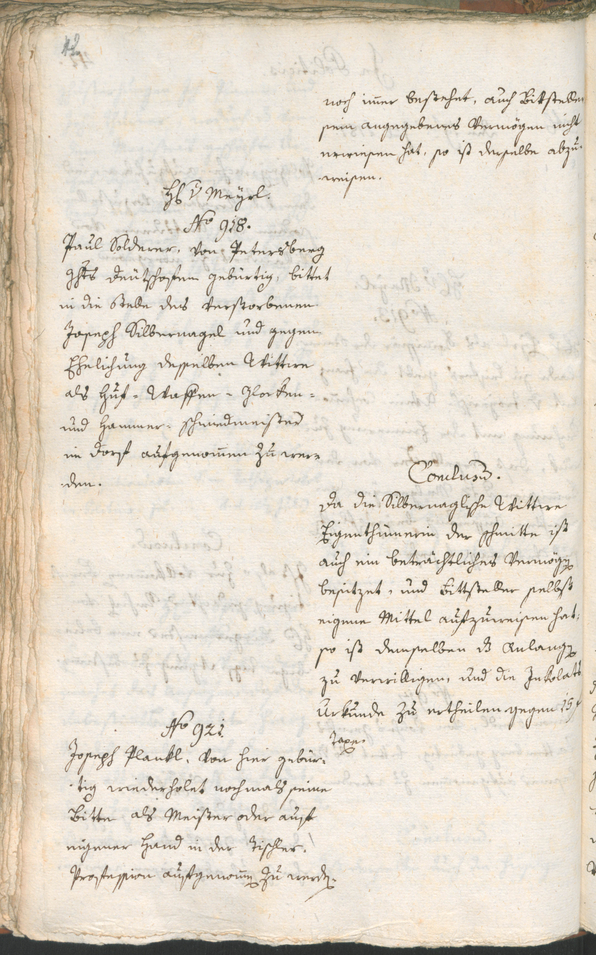 42
noch imer bestehet, auch Bittsteller
sein angegebenes Vermögen nicht
erwiesen hat, so ist derselbe abzu¬
weisen.
H: v Mayrl.
No 918.
Paul Solderer, von Petersberg
Ghts Deutschofen gebürtig, bittet
in die Stelle des verstorbenen
Joseph Silbernagel und gegen
Ehelichung desselben Wittwe
als Huf- Waffen- Glocken-
und Hammer- schmiedmeister
im Dorf aufgenommen zu wer=
den.
Conclusum.
Da die Silbernaglische Wittwe
Eigenthümerin der Schmitte ist
auch ein beträchtliches Vermögen
besitzet, und Bittsteller selbst
eigene Mittel aufzuweisen hat,
so ist demselben das Anlangen
zu verwilligen, und die Inkolats
Urkunde zu ertheilen gegen 15 f
Taxe.
No 921
Joseph Plankl, von hier gebür¬
tig wiederholet nochmals seine
Bitte als Meister oder auf
eigener Hand in der Tischler¬
Profession aufgenommen zu werden.